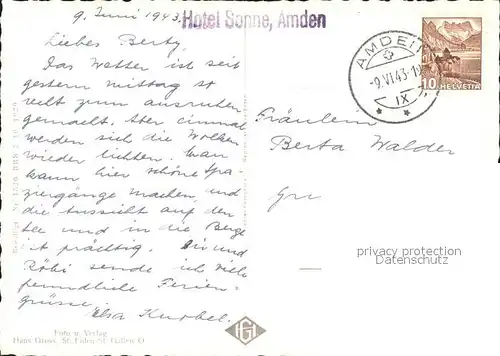 9. Juni 1943.
Hotel Sonne, Amden
Liebes Berty,
Das Wetter ist seit
gestern Mittag st
recht zum ausruhen
gemacht. Aber einmal
werden sich die Wolken
wieder lichten. Man
kann hier schöne Spa-
ziergänge machen, und
die Aussicht auf den
See und in die Berge
ist prächtig. Dir und
Röbi sende ich viele
freundliche Ferien-
grüsse.
Elsa Knobel.
AMDEN
-9.VI.43-19
IX
10 HELVETIA
Fräulein
Berta Walder
privacy protection
oldthing.de
Foto u. Verlag
Hans Gross, St. Fiden-St. Gallen O
HG